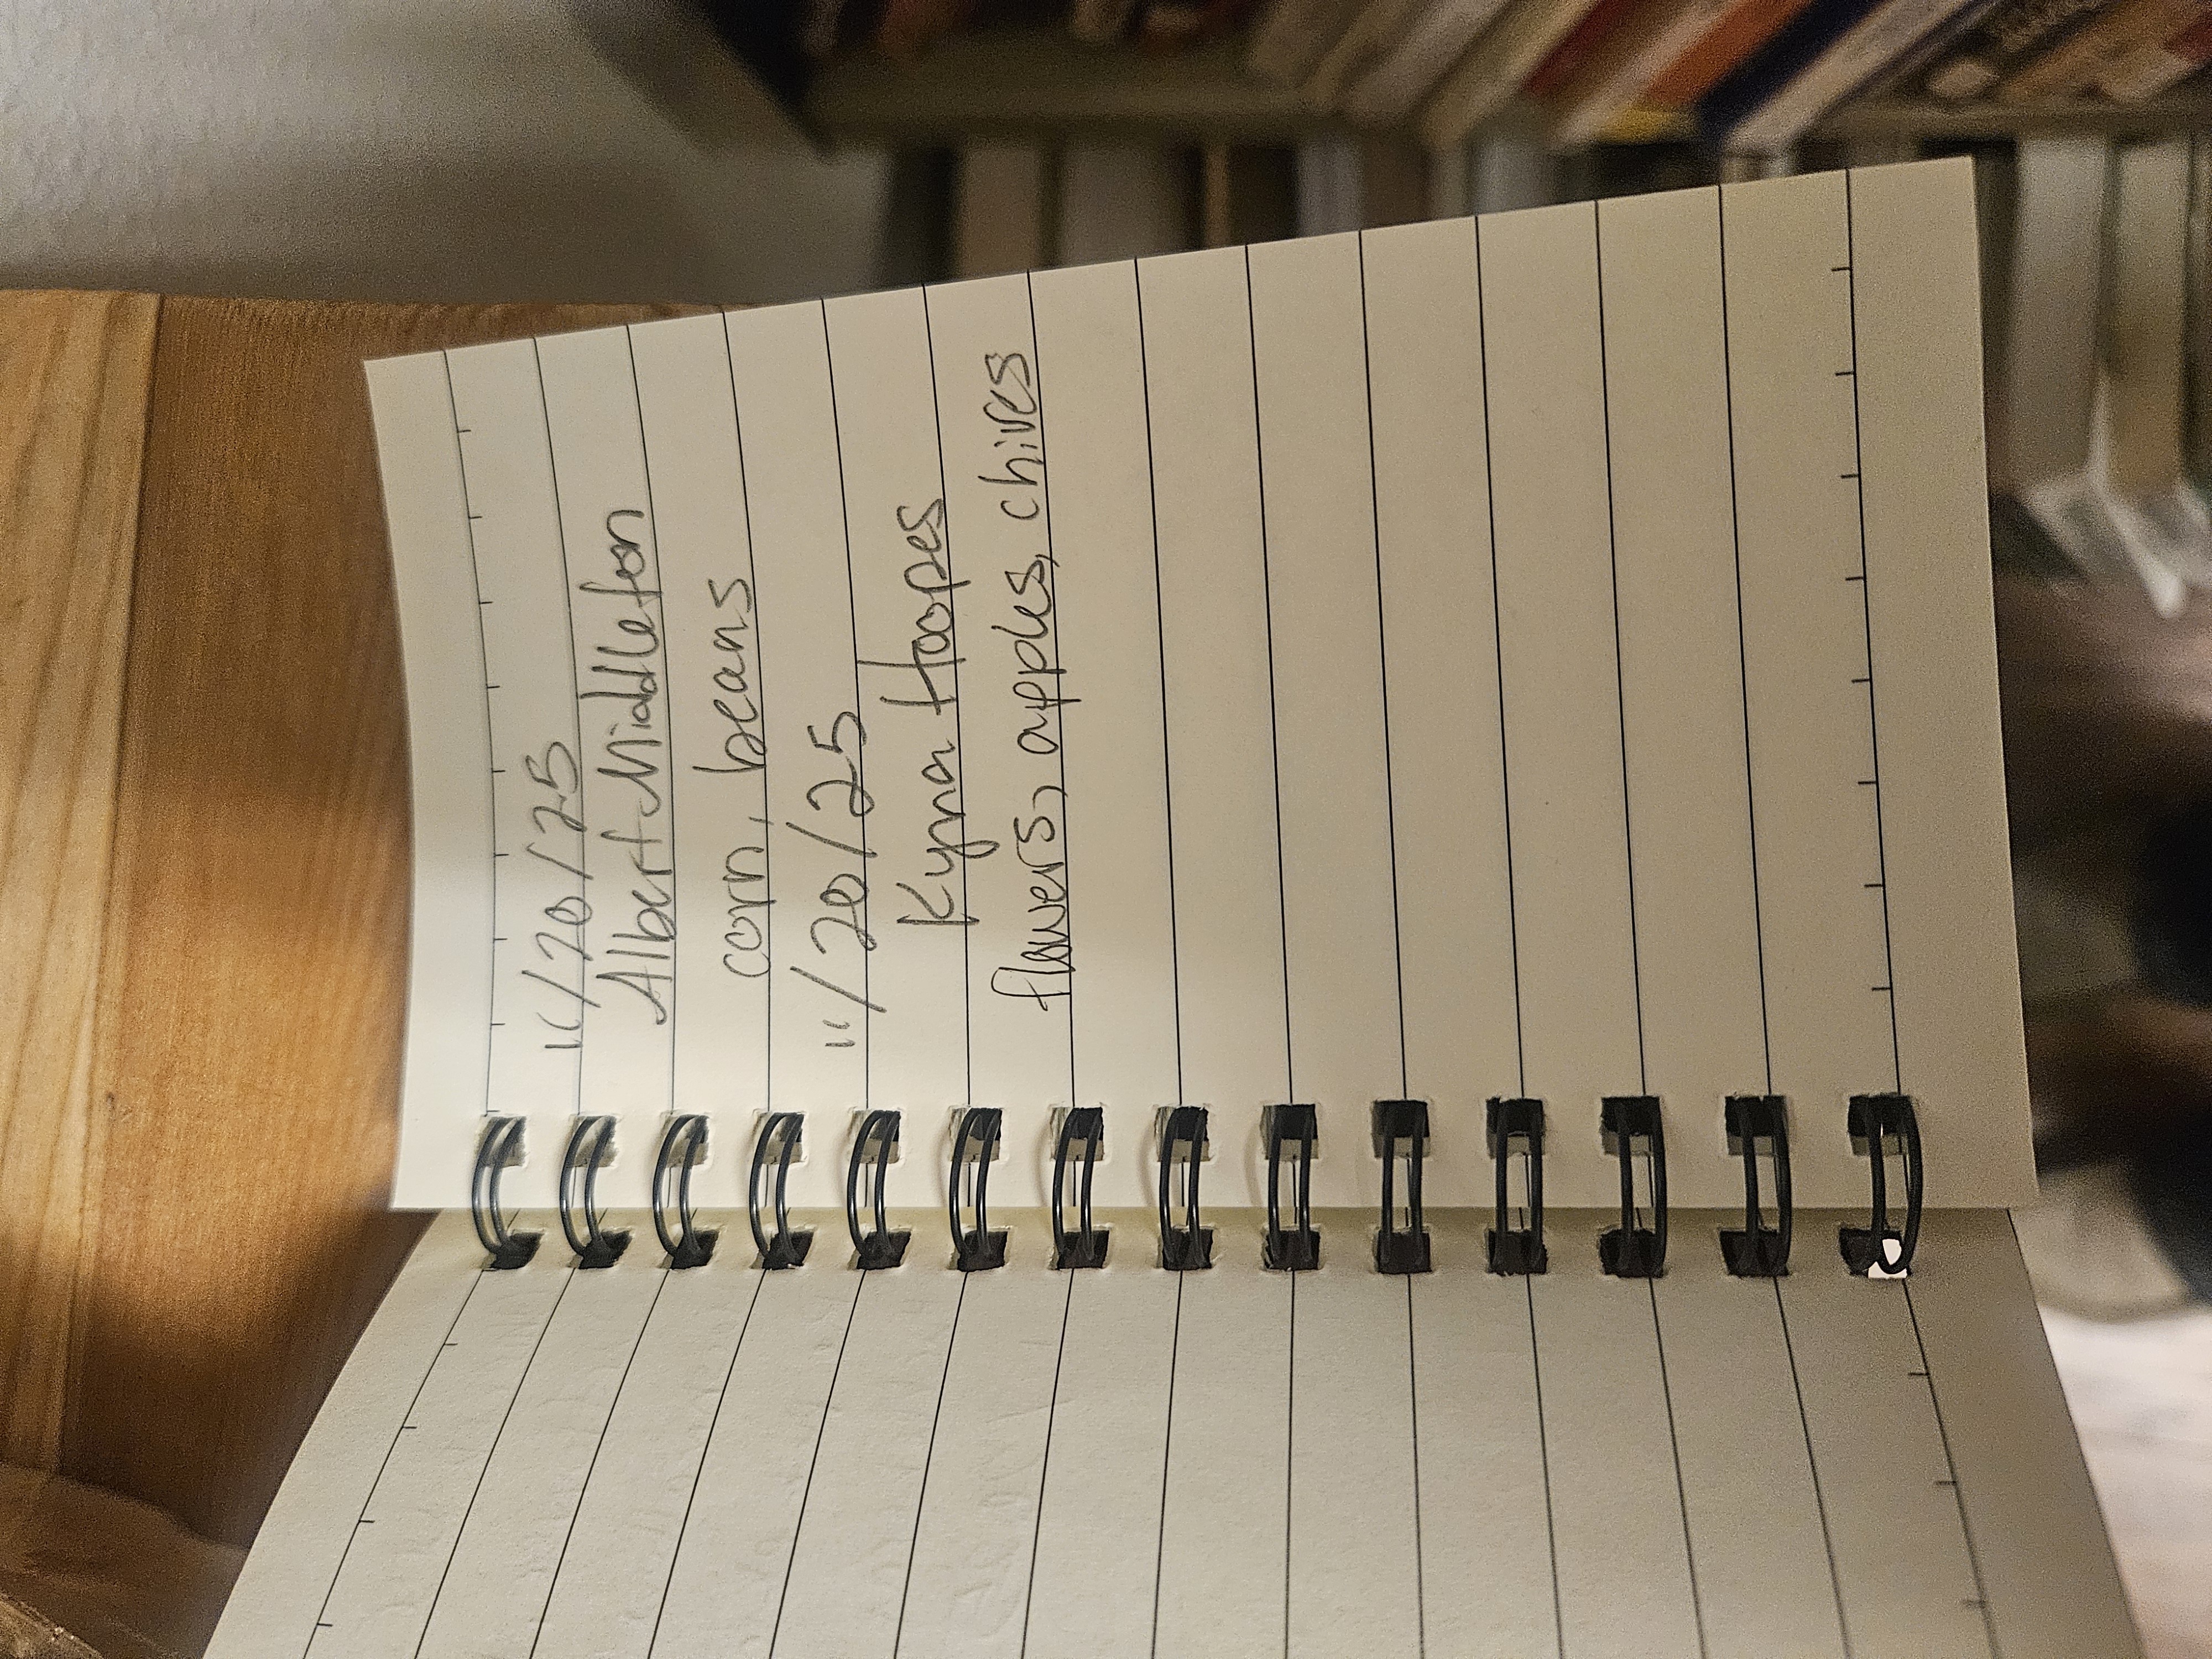 11/20/25
Albert Middleton
corn, beans
11/20/25
Kyna Hoopes
flowers, apples, chives